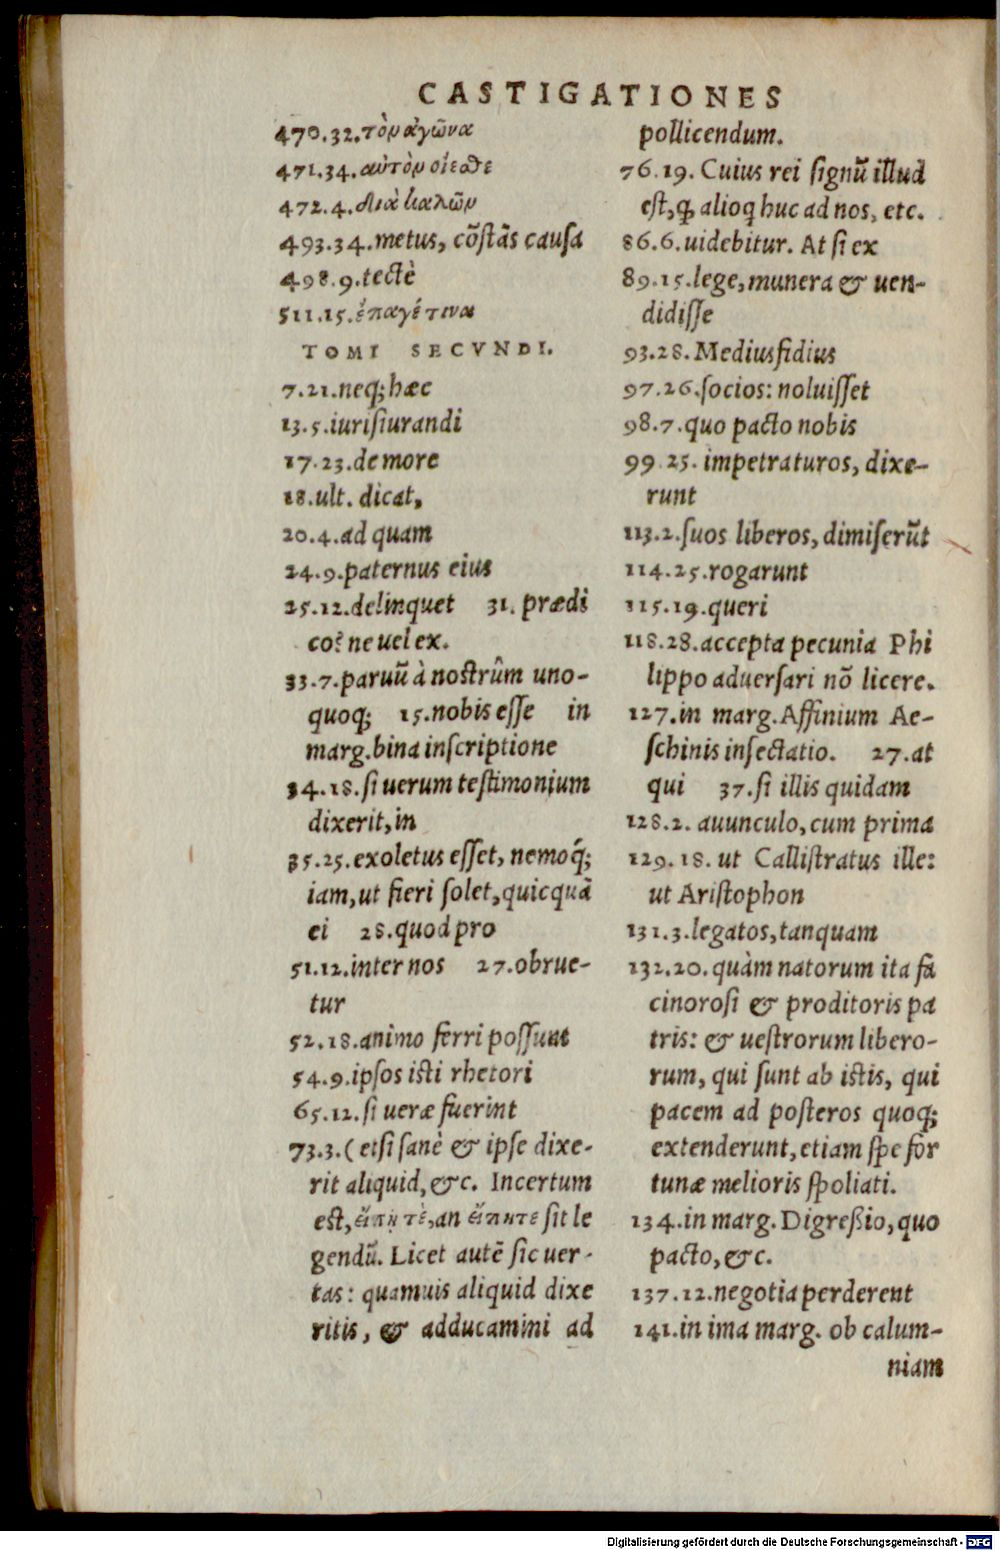 CASTIGATIONES
470.32.τὸν ἀγῶνα
471.34.αὐτὸν οἴεσθε
472.4.διὰ καλῶν
493.34.metus, cõstãs causa
498.9.tectè
511.15.ἐπαγέτινα
TOMI SECVNDI.
7.21.neq; hæc
13.5.iurisiurandi
17.23.de more
18.ult. dicat,
20.4.ad quam
24.9.paternus eius
25.12.delinquet 31. prædi
co? ne uel ex.
33.7.paruũ à nostrûm uno-
quoq; 15.nobis esse in
marg.bina inscriptione
34.18.si uerum testimonium
dixerit, in
35.25.exoletus esset, nemoq́;
iam, ut fieri solet, quicquã
ei 28.quod pro
51.12.inter nos 27.obrue-
tur
52.18.animo ferri possunt
54.9.ipsos isti rhetori
65.12.si ueræ fuerint
73.3.(etsi sanè & ipse dixe-
rit aliquid, &c. Incertum
est, εἴπῃ τὲ, an εἴπητε sit le
gendũ. Licet autẽ sic uer-
tas: quamuis aliquid dixe
ritis, & adducamini ad
pollicendum.
76.19. Cuius rei signũ illud
est, ꝙ alioq huc ad nos, etc.
86.6.uidebitur. At si ex
89.15.lege, munera & uen-
didisse
93.28.Mediusfidius
97.26.socios: noluisset
98.7.quo pacto nobis
99.25.impetraturos, dixe-
runt
113.2.suos liberos, dimiserũt
114.25.rogarunt
115.19.queri
118.28.accepta pecunia Phi
lippo aduersari nõ licere.
127.in marg.Affinium Ae-
schinis insectatio. 27.at
qui 37.si illis quidam
128.2. auunculo, cum prima
129.18. ut Callistratus ille:
ut Aristophon
131.3.legatos, tanquam
132.20.quàm natorum ita fa
cinorosi & proditoris pa
tris: & uestrorum libero-
rum, qui sunt ab istis, qui
pacem ad posteros quoq;
extenderunt, etiam spe for
tunæ melioris spoliati.
134.in marg. Digreßio, quo
pacto, &c.
137.12.negotia perderent
141.in ima marg. ob calum-
niam
Digitalisierung gefördert durch die Deutsche Forschungsgemeinschaft - DFG